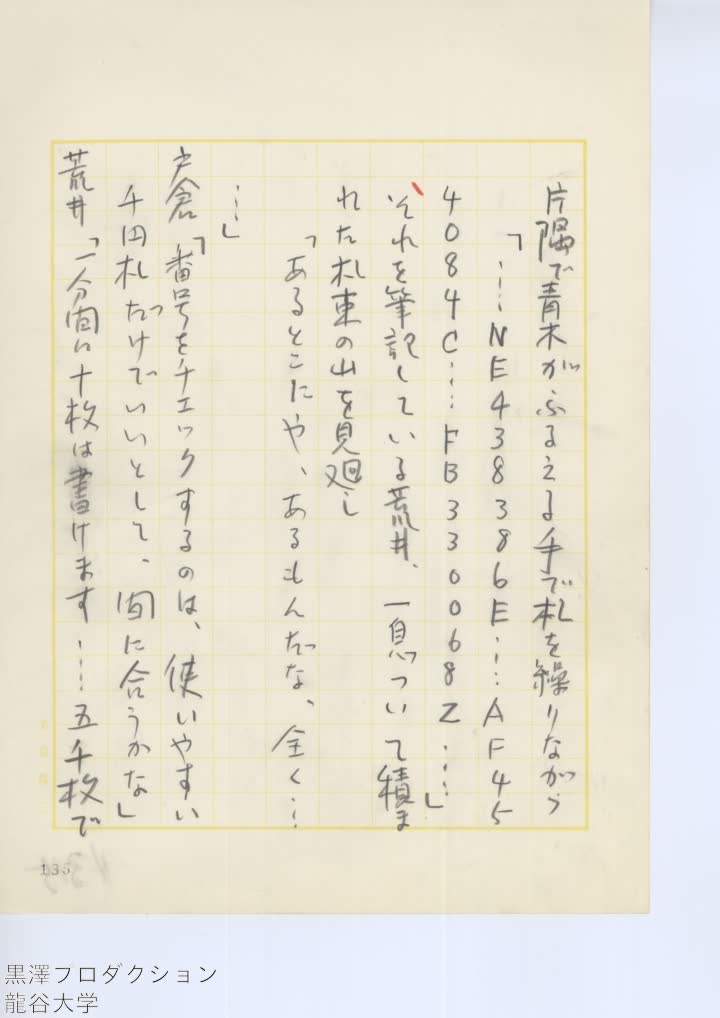 片隅で青木がふるえる手で札を繰りながら
「……NE438386E……AF45
4084C……FB330068Z……」
それを筆記している荒井、一息ついて積ま
れた札束の山を見廻し
「あるとこにや、あるもんだな、全く…
…」
戸倉「番号をチェックするのは、使いやすい
千円札だけでいいとして、間に合うかな」
荒井「一分間に十枚は書けます……五千枚で
135
黒澤プロダクション
龍谷大学